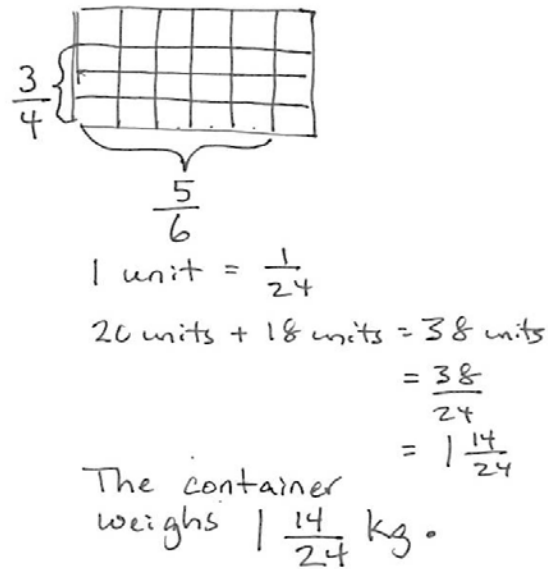 3/4
5/6
1 unit = 1/24
20 units + 18 units = 38 units
= 38/24
= 1 14/24
The container
weighs 1 14/24 kg.